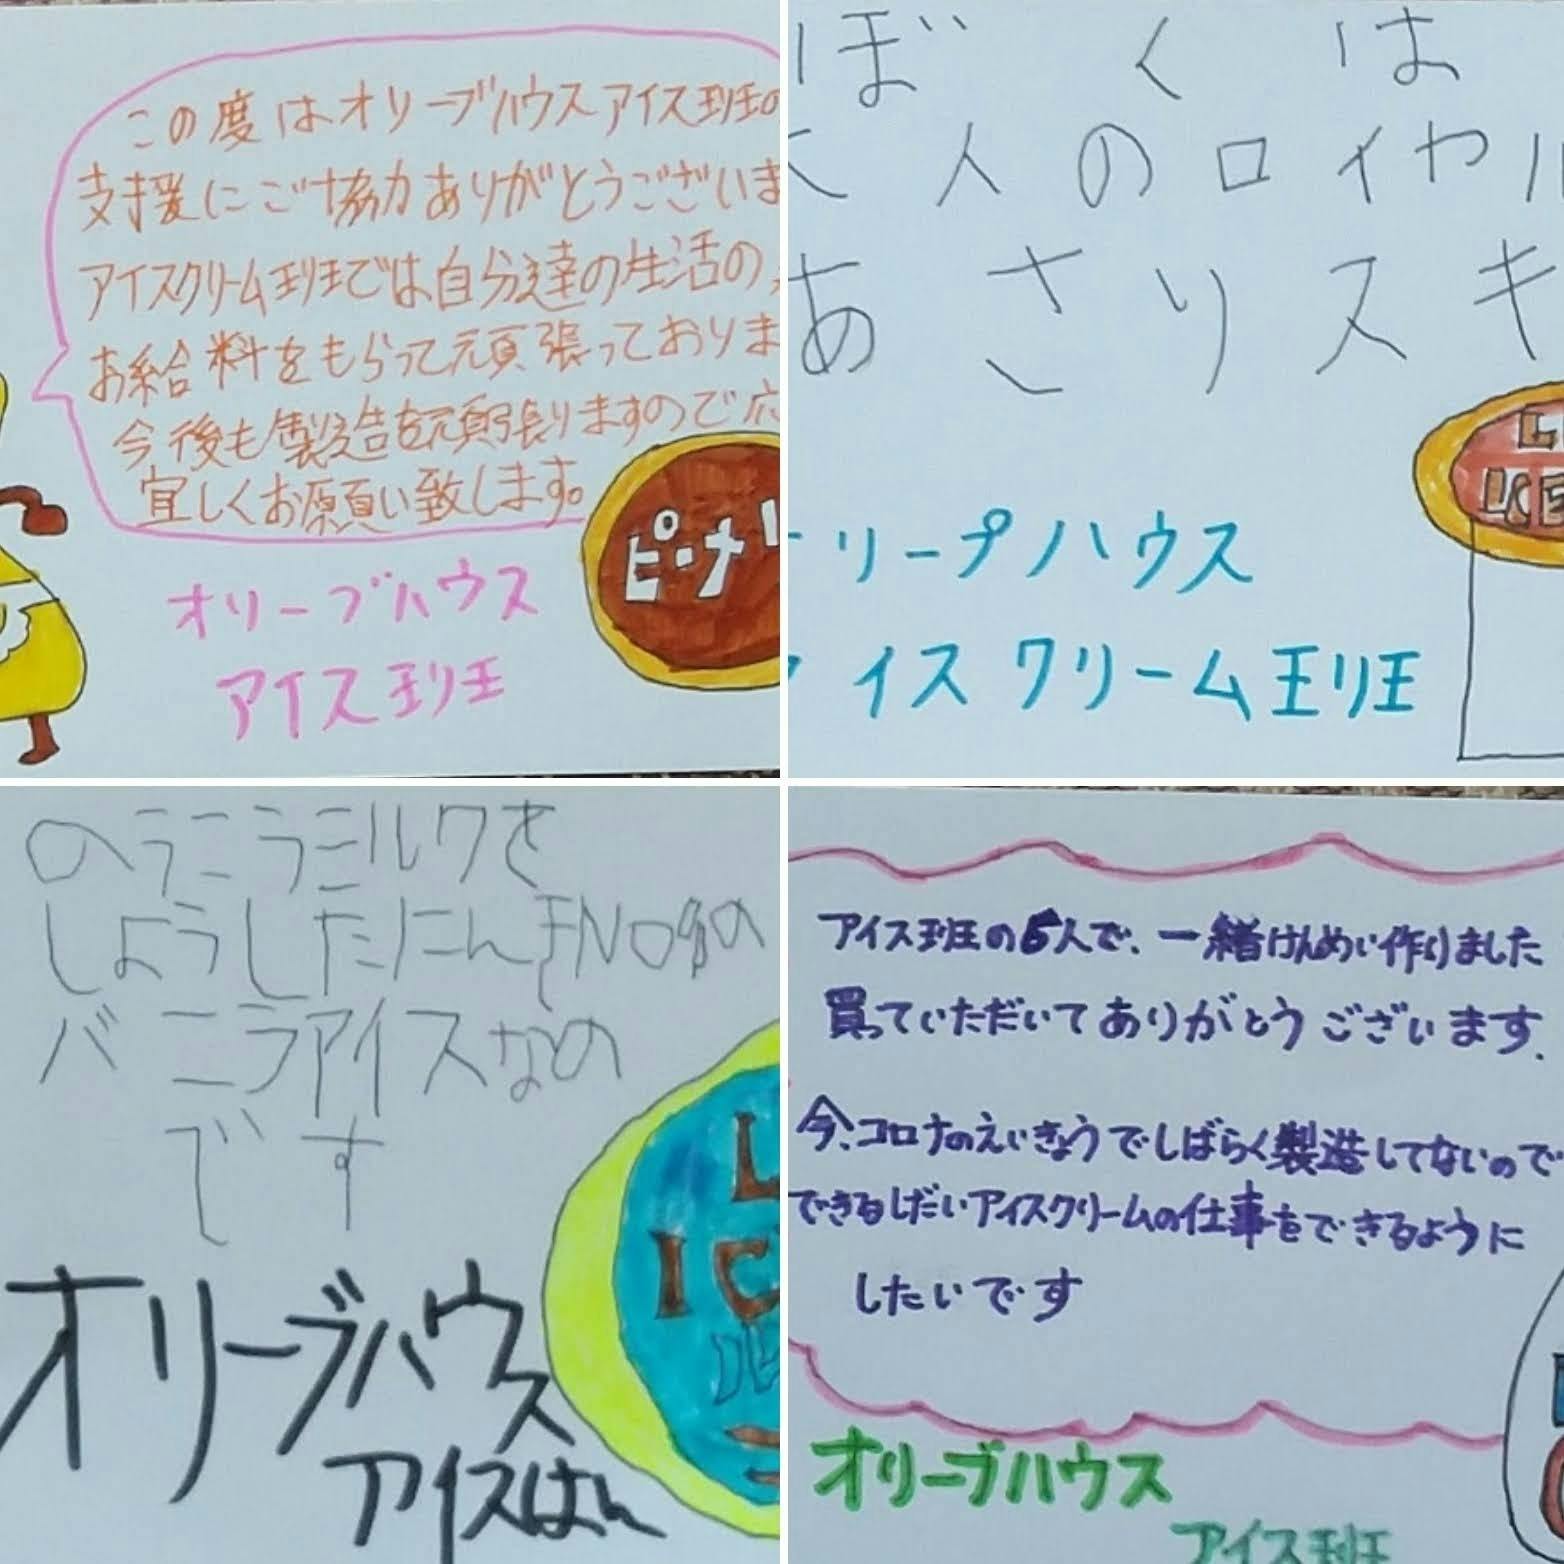 この度はオリーブハウスアイス班の
支援にご協力ありがとうございま
アイスクリーム班では自分達の生活の
お給料をもらって頑張っておりま
今後も製造を頑張りますので応
宜しくお願い致します。
ピーナ
オリーブハウス
アイス班
ぼくは
大人のロイヤル
あさりスキ
リーブハウス
イスクリーム班
のヘラニラミルクを
しようしたにんきNO1の
バニラアイスなの
です
オリーブハウス
アイスはん
アイス班の5人で、一緒けんめい作りました
買っていただいてありがとうございます.
今、コロナのえいきょうでしばらく製造してないので
できるしだいアイスクリームの仕事をできるように
したいです
オリーブハウス
アイス班